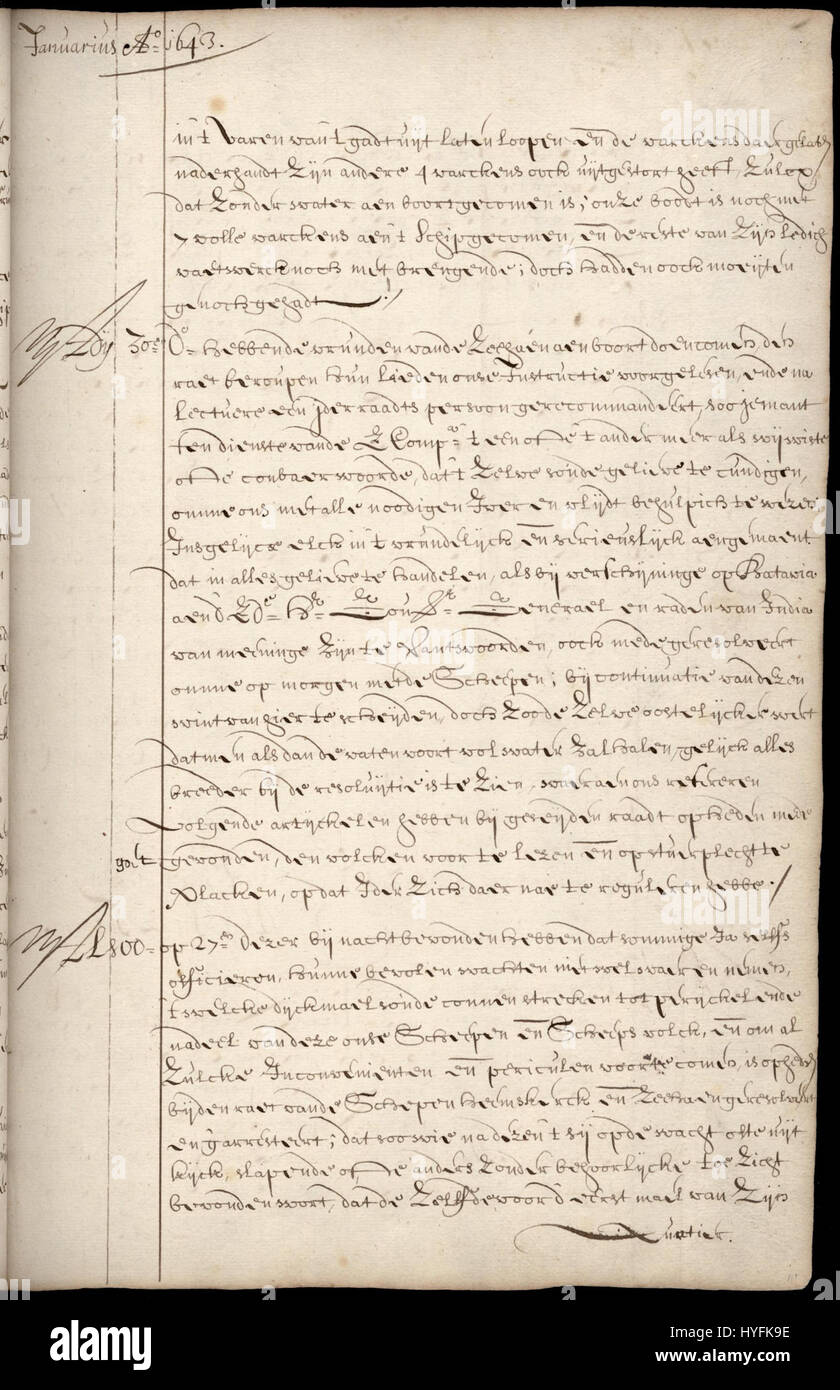 Januarius Aº 1643.
in't varen van't gadt uijt laten loopen en de varckens daer gelaten
naderhandt zijn andere 4 varckens oock uijtgestort heeft, zulcx
dat zonder water aen boort gecomen is; onze boodt is noch met
7 volle varckens aen't schip gecomen, en de reste van zijn ledich
vaetwerck noch met brengende; doch hadden oock moeijten
genoch gehadt
30en Dº hebbende vrunden vande Zeehaen aen boort doen comen, den
raet beroupen hun lieden onse Instructie voorgelesen, ende na
lectuere een ijder raadts persoon gerecommandeert, soo jemant
ten dienste vande E Compe 't een ofte 't ander meer als wij wiste
ofte conbaer woorde, dat 't zelve soude gelieve te cundigen,
omme ons met alle noodigen Iver en vlijdt behulpich te wezen
Insgelijcx elck in't vrundelijck en serieuslijck aengemaent
dat in alles gelieve te handelen, als bij verschijninge op Batavia
aen d' Ede Hr Gouvr Generael en raden van India
van meeninge zijn te verantwoorden, oock mede geresolveert
omme op morgen met de Scheepen; bij continuatie van dezen
wint van hier te scheijden, doch zoo de zelve oostelijcker wert
datmen als dan de vaten voort vol water zal halen, gelijck alles
breeder bij de resoluijtie is te zien, waeraen ons refereren
volgende artijckelen hebben bij geseijden raadt op heden mede
goet gevonden, den volcken voor te lezen en op stuerplecht te
placken, op dat Ider zich daer nae te reguleren hebbe
Alsoo op 27en dezer bij nacht bevonden hebben dat sommige Ja selfs
officieren, hunne bevolen wachten niet wel waer en nemen,
't welcke dijckmael soude connen strecken tot perijckel ende
nadeel van deze onse Scheepen en Scheeps volck, en om al
zulcke Inconvenienten en periculen voor te comen, is op heden
bij den raet vande Scheepen Heemskerck en Zeehaen geresolveert
en g'arresteert; dat soo wie na dezen 't sij op de wacht ofte uijt
kijck, slapende ofte anders zonder behoorlijcke toezicht
bevonden wort, dat de zelfde voor d' eerst mael van zijn
quartier.
alamy stock photo
HYFK9E
www.alamy.com